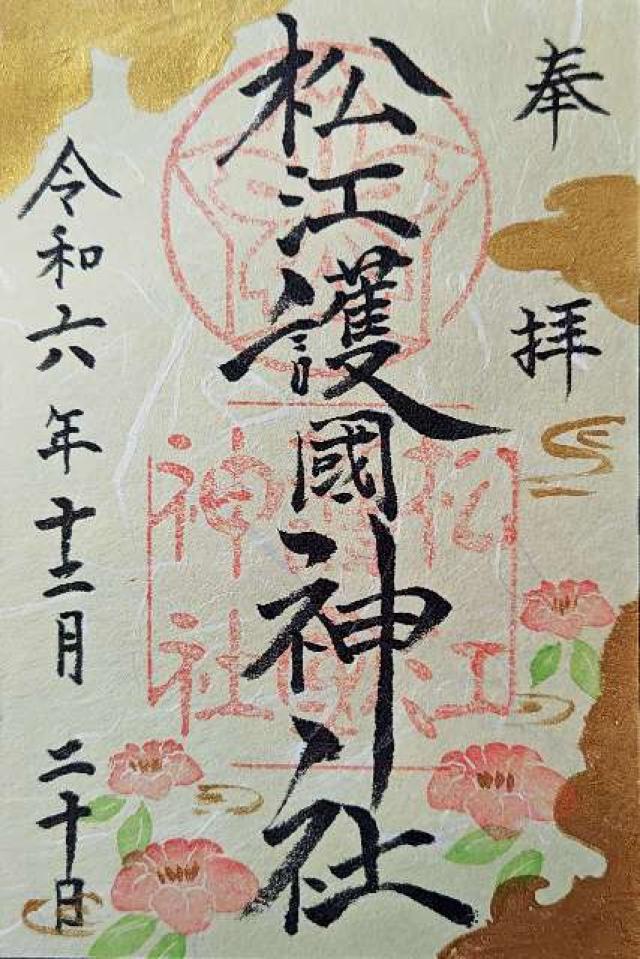 奉拝
松江護國神社
松江護國神社
令和六年十二月二十日